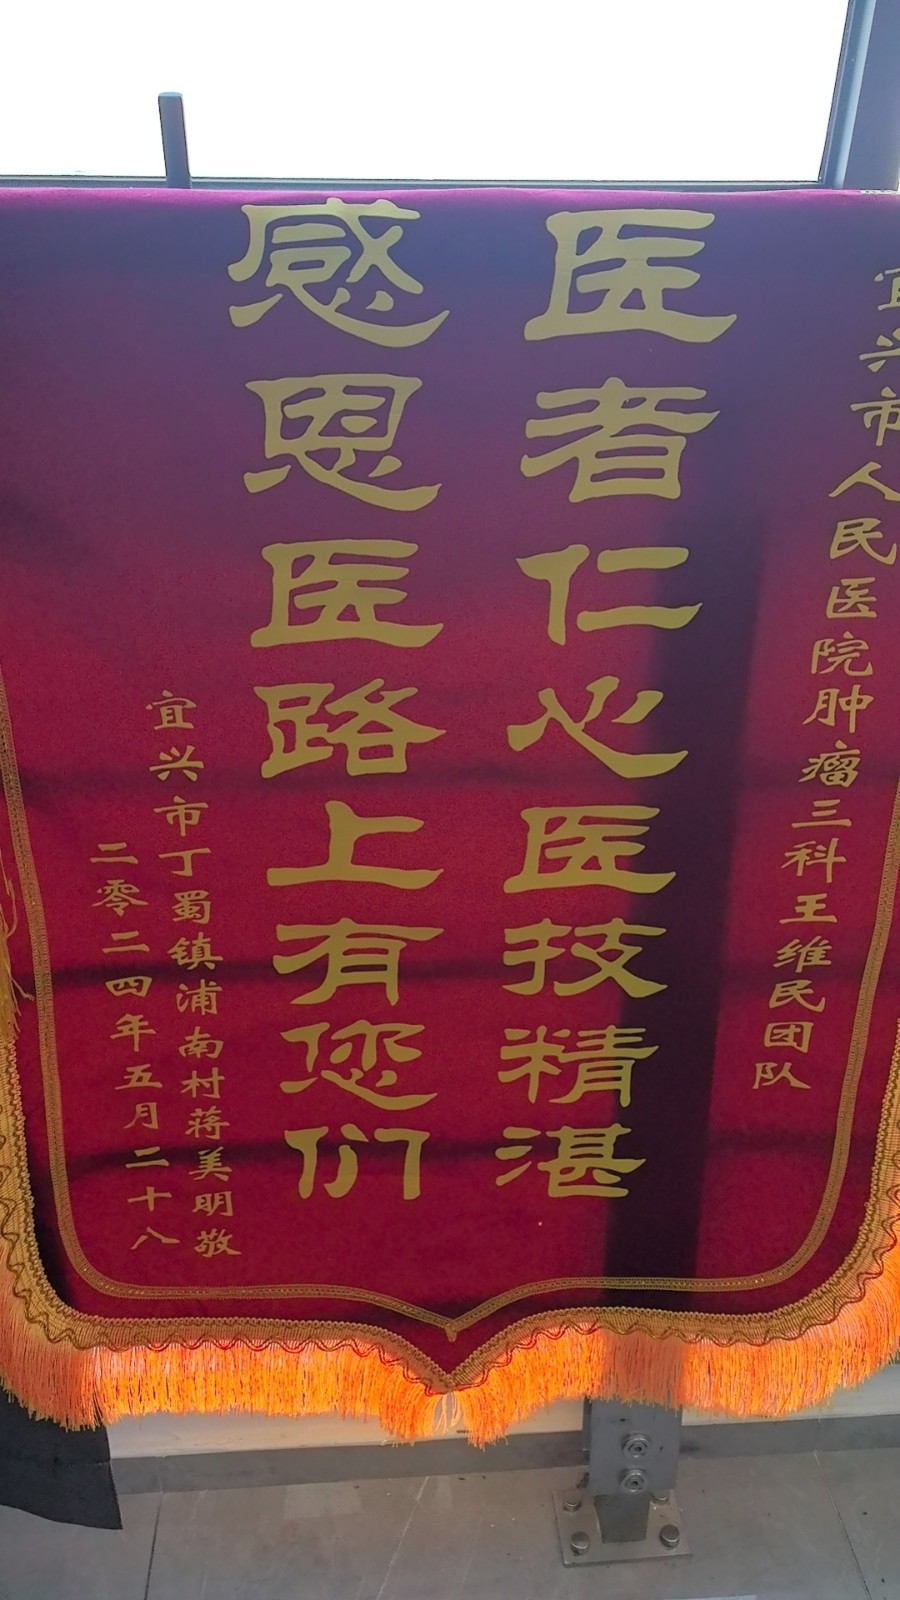 宜兴市人民医院肿瘤三科王维民团队
医者仁心医技精湛
感恩医路上有您们
宜兴市丁蜀镇浦南村蒋美明敬
二零二四年五月二十八